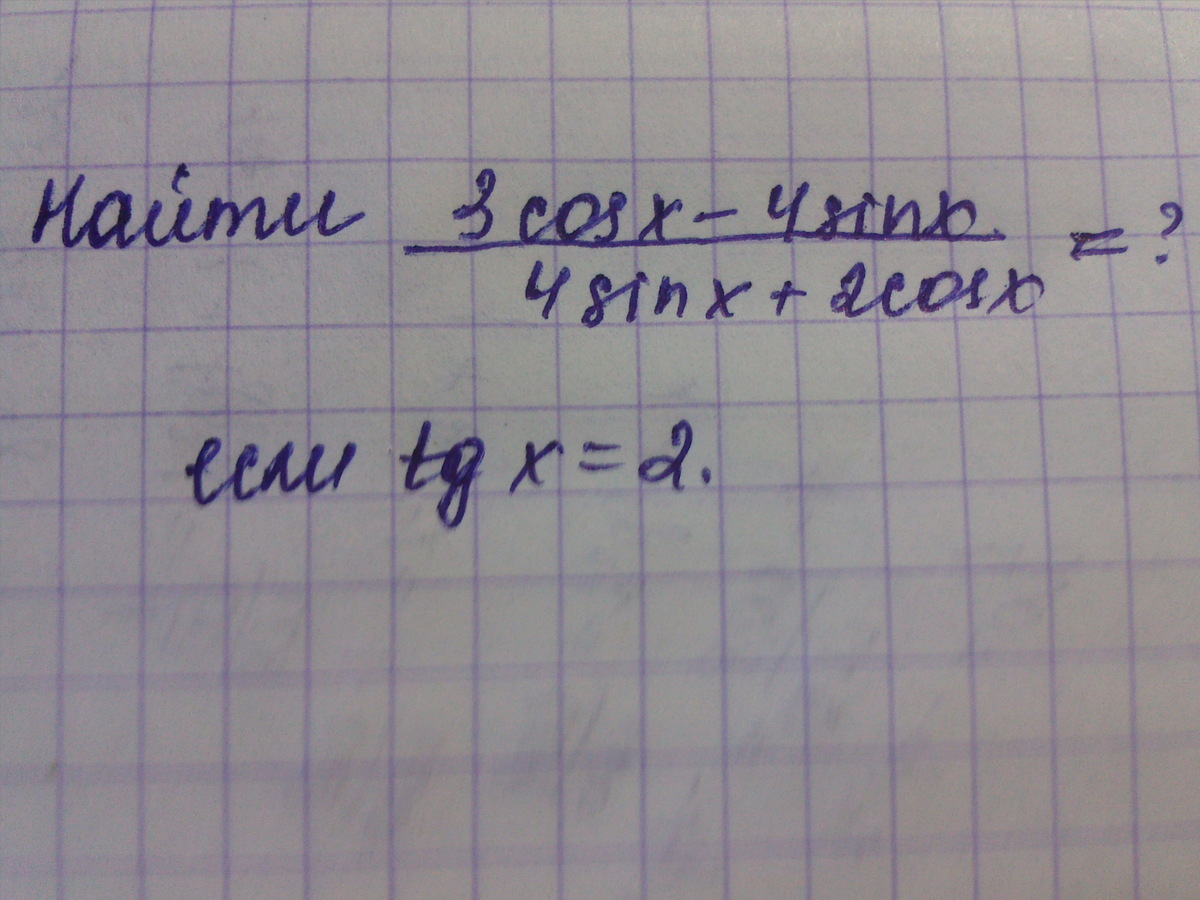 Найти 3cosx - 4sinx / 4sinx + 2cosx = ?
если tg x = 2.